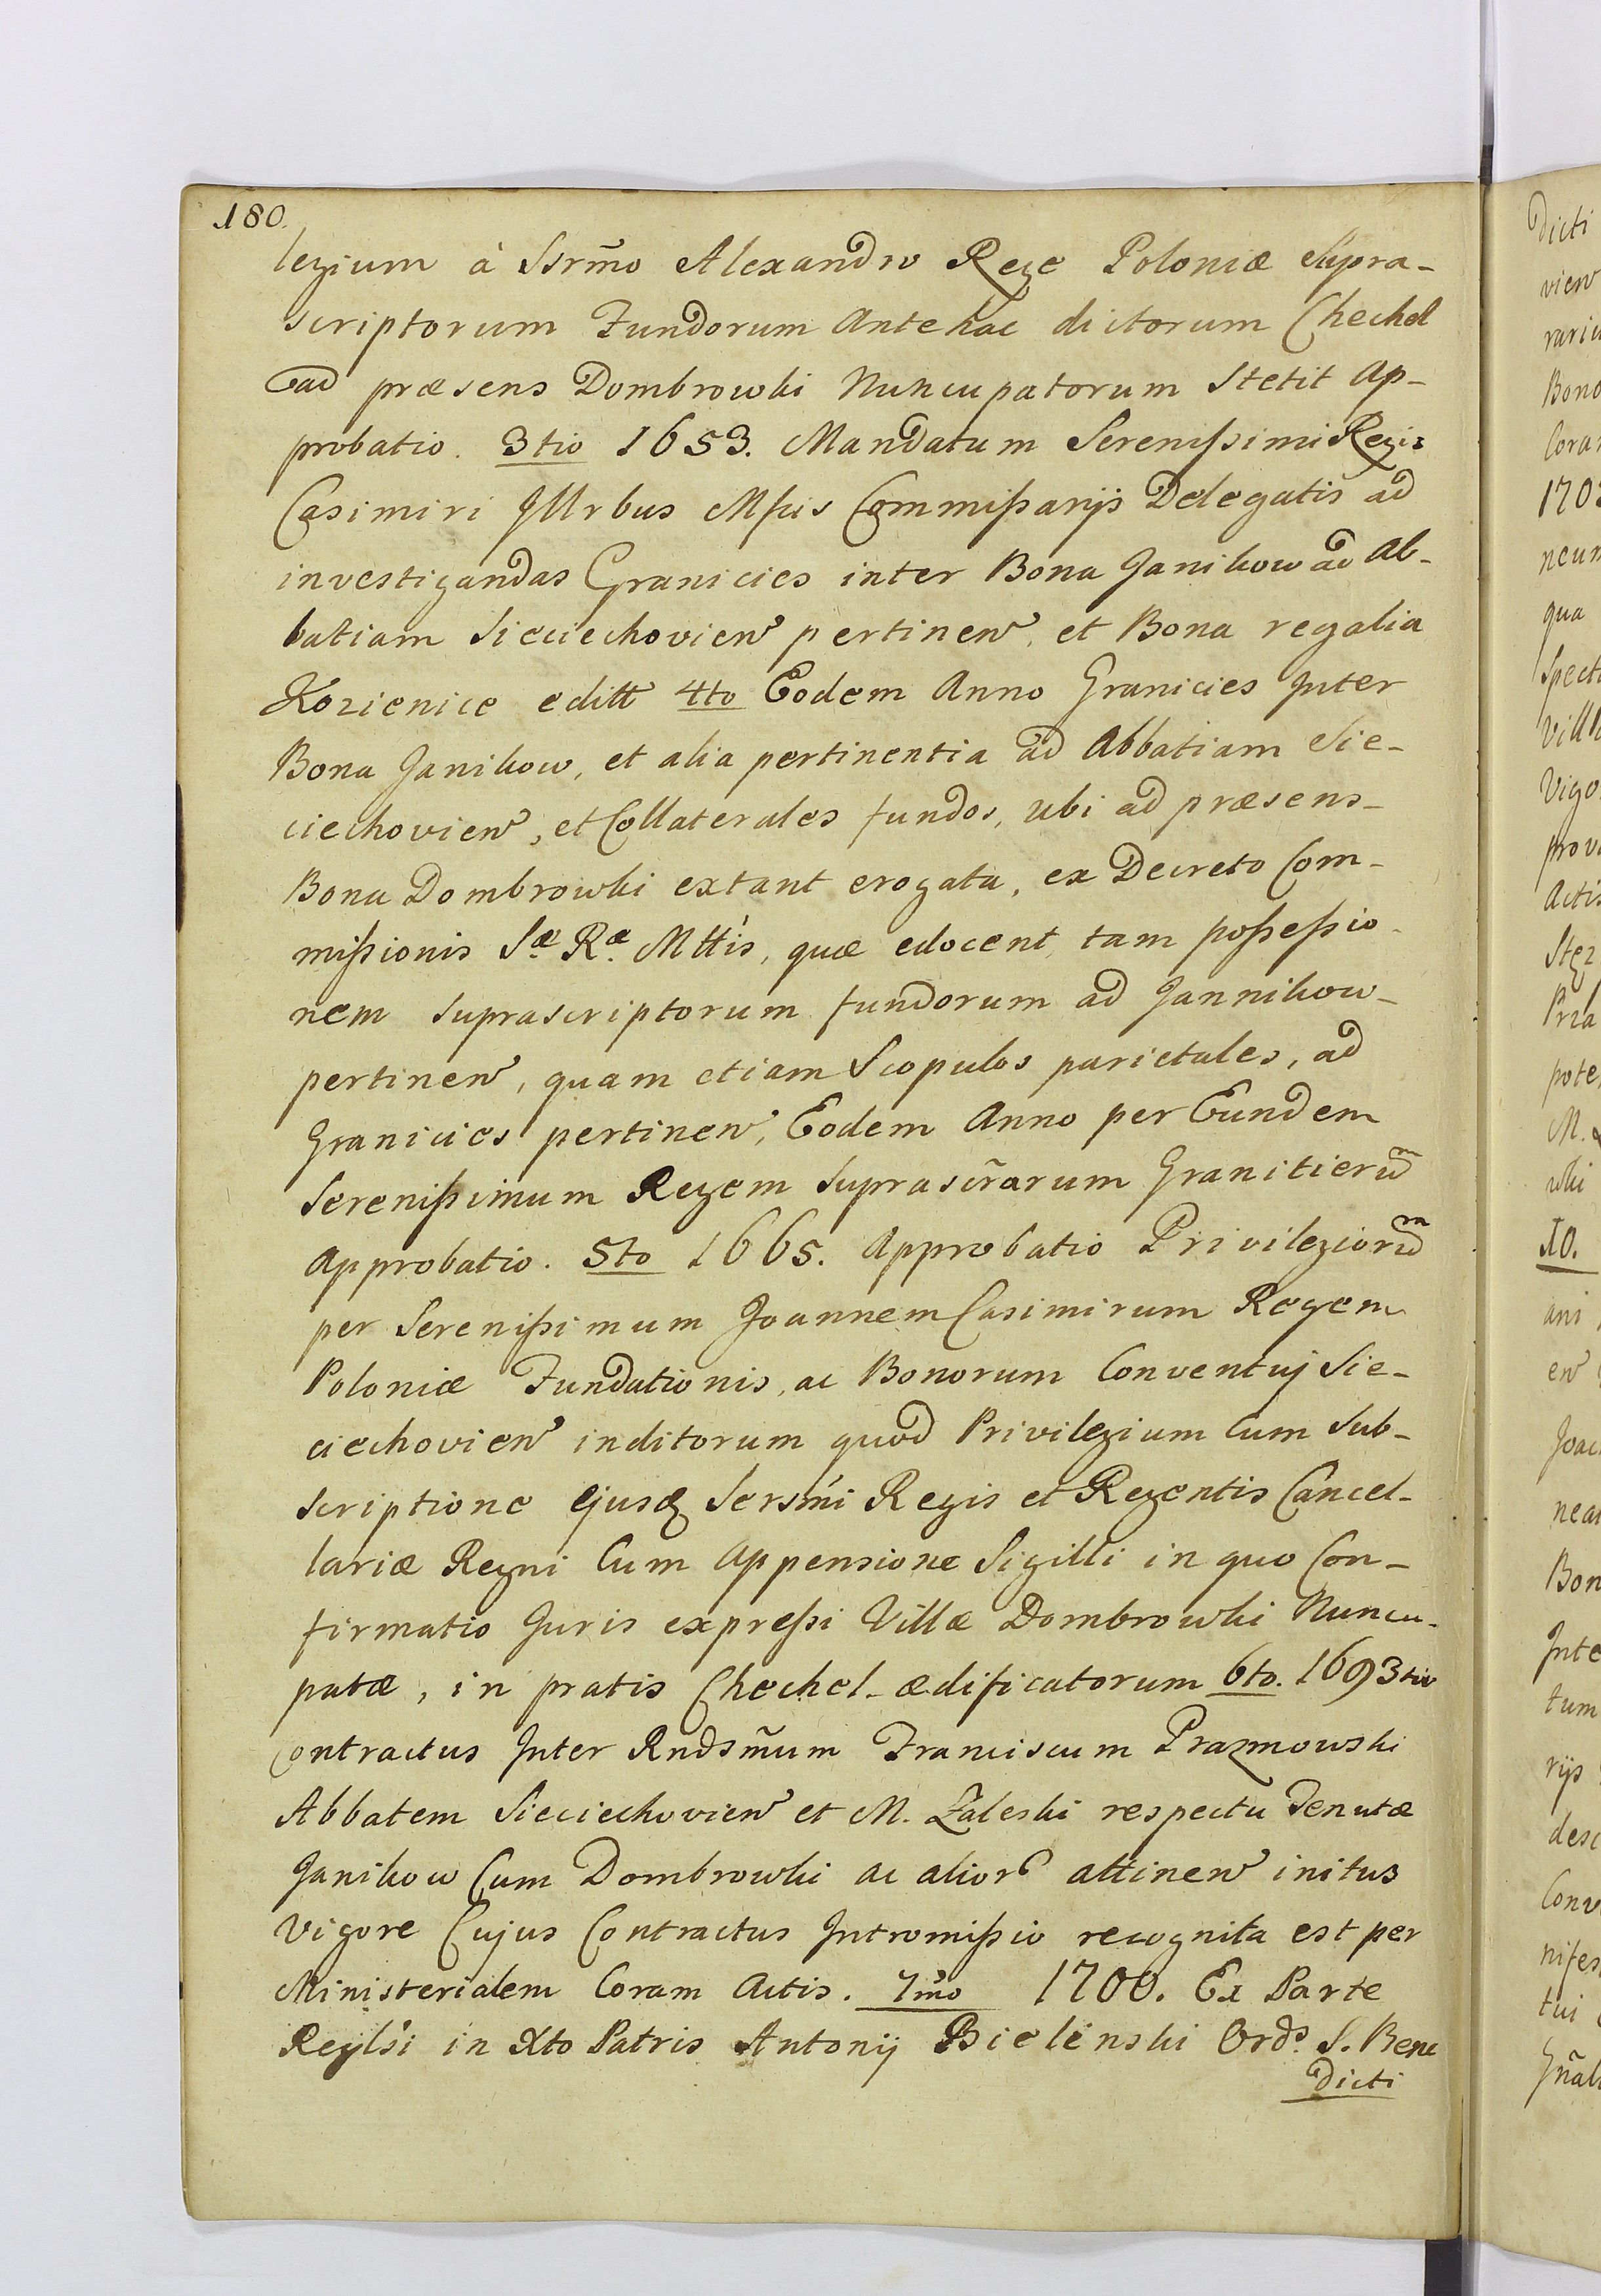 180.
legium à Ssrm̃o Alexandro Rege Poloniæ Supra-
scriptorum Fundorum Antehac dictorum Chechel
ad præsens Dombrowki Nuncupatorum Stetit Ap-
probatio. 3tio 1653. Mandatum Serenißimi Regis
Casimiri Jllrbus Mfcis Commißarijs Delegatis ad
investigandas Granicies inter Bona Janikow ad Ab-
batiam Sieciechovien pertinen, et Bona regalia
Kozienice editt 4to Eodem Anno Granicies Jnter
Bona Janikow, et alia pertinentia ad Abbatiam Sie-
ciechovien, et Collaterales fundos, ubi ad præsens-
Bona Dombrowki extant erogata, ex Decreto Com-
mißionis S.æ R.æ Mttis, quæ edocent, tam poßeßio-
nem suprascriptorum fundorum ad Jannikow-
pertinen, quam etiam Scopulos parietales, ad
Granicies pertinen, Eodem Anno per Eundem
Serenißimum Regem suprascr̃arum Granitierum
Approbatio. 5to 1665. Approbatio Privilegiorum
per Serenißimum Joannem Casimirum Regem
Poloniæ Fundationis, ac Bonorum Conventuj Sie-
ciechovien inditorum quod Privilegium Cum Sub-
scriptione ejusq Sersmi Regis et Regentis Cancel-
lariæ Regni Cum Appensione Sigilli in quo Con-
firmatio Juris expreßi Villæ Dombrowki Nuncu-
patæ, in pratis Chechel- ædificatorum 6to. 1693tio
Contractus Jnter Rndsm̃um Franciscum Prazmowski
Abbatem Sieciechovien et M. Zaleski respectu Tenutæ
Janikow Cum Dombrowki ac alior attinen initus
Vigore Cujus Contractus Jntromißio recognita est per
Ministerialem Coram Actis. 7mo 1700. Ex Parte
Reylsi in Xto Patris Antonij Bielinski Ord. S. Bene
dicti
Dicti
vien
Bono
Coram
neum
qua
Vigo
Actis
M.
10.
ani
en
Bon
Jnte
tum
rijs
desc
Conv
tui